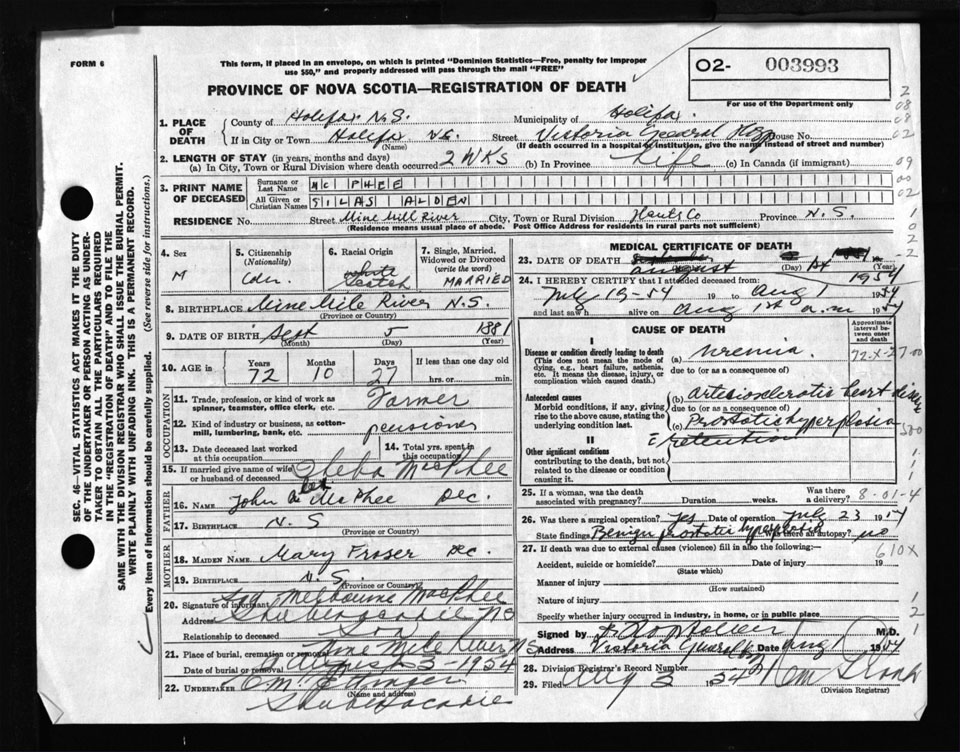 FORM 6
This form, if placed in an envelope, on which is printed "Dominion Statistics—Free, penalty for improper
use $50," and properly addressed will pass through the mail "FREE"
O2- 003993
For use of the Department only
PROVINCE OF NOVA SCOTIA—REGISTRATION OF DEATH
1. PLACE OF DEATH
County of Halifax N.S. Municipality of Halifax
If in City or Town Halifax N.S. Street Victoria General Hosp House No.
(Name) (If death occurred in a hospital or institution, give the name instead of street and number)
2. LENGTH OF STAY (in years, months and days)
(a) In City, Town or Rural Division where death occurred 2 WKS (b) In Province Life (c) In Canada (if immigrant)
3. PRINT NAME OF DECEASED
Surname or Last Name MC PHEE
All Given or Christian Names SILAS ALDEN
RESIDENCE No. Street Mine Mill River City, Town or Rural Division Hants Co Province N.S.
(Residence means usual place of abode. Post Office Address for residents in rural parts not sufficient)
4. Sex M
5. Citizenship (Nationality) Cdn.
6. Racial Origin white Scotch
7. Single, Married, Widowed or Divorced (write the word) MARRIED
8. BIRTHPLACE Nine Mile River N.S.
(Province or Country)
9. DATE OF BIRTH Sept 5 1881
(Month) (Day) (Year)
10. AGE in Years 72 Months 10 Days 27 If less than one day old hrs. or min.
OCCUPATION
11. Trade, profession, or kind of work as spinner, teamster, office clerk, etc. Farmer
12. Kind of industry or business, as cotton-mill, lumbering, bank, etc. pensioner
13. Date deceased last worked at this occupation
14. Total yrs. spent in this occupation
15. If married give name of wife or husband of deceased MacPhee
FATHER
16. NAME John McPhee Dec.
17. BIRTHPLACE N.S
(Province or Country)
MOTHER
18. MAIDEN NAME Mary Fraser Dec
19. BIRTHPLACE N.S
(Province or Country)
20. Signature of informant Melbourne MacPhee
Address Shubenacadie NS
Relationship to deceased Son
21. Place of burial, cremation or removal Nine Mile River NS
Date of burial or removal August 3-1954
22. UNDERTAKER
(Name and address)
Shubenacadie
MEDICAL CERTIFICATE OF DEATH
23. DATE OF DEATH August 1st 1954
(Day) (Year)
24. I HEREBY CERTIFY that I attended deceased from:
July 19-54 19 to Aug 1 1954
and last saw h alive on Aug 1st a.m 1954
CAUSE OF DEATH
Approximate interval between onset and death
I
Disease or condition directly leading to death (a) uremia
(This does not mean the mode of dying, e.g., heart failure, asthenia, etc. It means the disease, injury, or complication which caused death.)
due to (or as a consequence of)
72-X-27-00
Antecedent causes (b) Arteriosclerotic heart disease
Morbid conditions, if any, giving rise to above cause, stating the underlying condition last.
due to (or as a consequence of)
(c) Prostatic hyperplasia
retention
II
Other significant conditions
contributing to the death, but not related to the disease or condition causing it.
25. If a woman, was the death associated with pregnancy? Duration weeks. Was there a delivery? 8-01-4
26. Was there a surgical operation? Yes Date of operation July 23 1954
State findings Benign prostatic hyperplasia Was there an autopsy? no
27. If death was due to external causes (violence) fill in also the following:—
610X
Accident, suicide or homicide? Date of injury 19
(State which)
Manner of injury
(How sustained)
Nature of injury
Specify whether injury occurred in industry, in home, or in public place
Signed by M.D.
Address Victoria General Hosp Date Aug 1 1954
28. Division Registrar's Record Number
29. Filed Aug 3 1954
(Division Registrar)
SEC. 46—VITAL STATISTICS ACT MAKES IT THE DUTY
OF THE UNDERTAKER OR PERSON ACTING AS UNDER-
TAKER TO OBTAIN ALL THE PARTICULARS REQUIRED
IN THE "REGISTRATION OF DEATH" AND TO FILE THE
SAME WITH THE DIVISION REGISTRAR WHO SHALL ISSUE THE BURIAL PERMIT.
WRITE PLAINLY WITH UNFADING INK. THIS IS A PERMANENT RECORD.
Every item of Information should be carefully supplied. (See reverse side for instructions.)